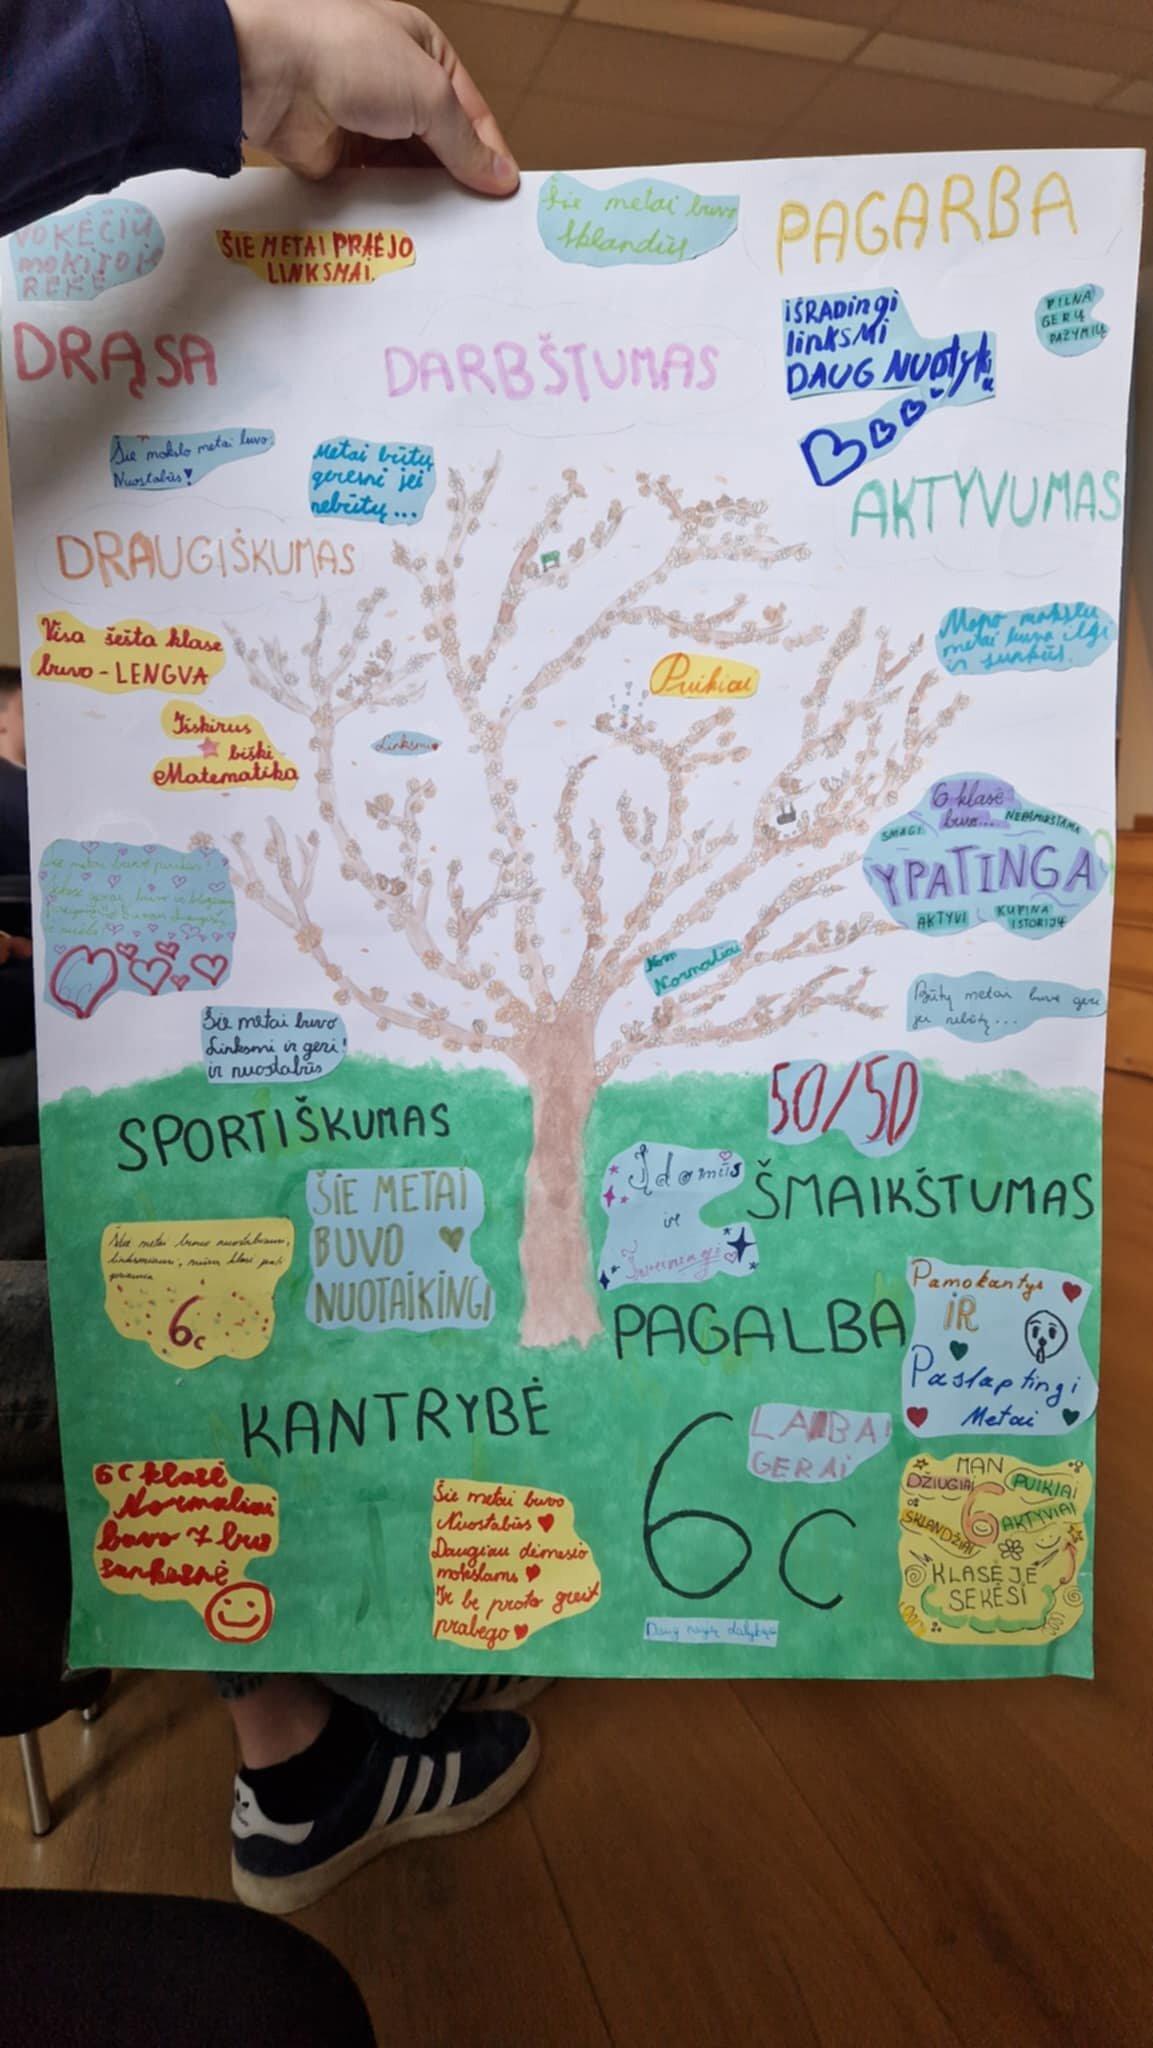 VOKĖČIŲ
MOKITOJA
RĖKĖ
ŠIE METAI PRAĖJO
LINKSMAI.
Šie metai buvo
Sklandūs
PAGARBA
DRĄSA
DARBŠTUMAS
IŠRADINGI
LINKSMI
DAUG NUOTYKIŲ
PILNA
GERŲ
PAŽYMIŲ
Šie mokslo metai buvo:
Nuostabūs!
Metai būtų
geresni jei
nebūtų...
AKTYVUMAS
DRAUGIŠKUMAS
Visa šešta klase
buvo - LENGVA
Mano mokslų
metai buvo ilgi
ir sunkūs.
Puikiai
Išskirus
biški
Matematika
Linksmi
6 klasė
buvo...
SMAGI
NEPAMIRŠTAMA
YPATINGA
AKTYVI
KUPINA
ISTORIJŲ
Šie metai buvo puikūs!
Nom
Normaliai
Būtų metai buvę geri
jei nebūtų...
Šie metai buvo
Linksmi ir geri!
ir nuostabūs
50/50
SPORTIŠKUMAS
Įdomūs
ir
ŠMAIKŠTUMAS
ŠIE METAI
BUVO
NUOTAIKINGI
Šie metai buvo nuostabiausi,
linksmiausi, mūsų klasė pati
geriausia
6c
PAGALBA
Pamokantys
IR
Paslaptingi
Metai
KANTRYBĖ
LABAI
GERAI
6c
6C klasė
Normaliai
buvo 7 bus
sunkesnė
Šie metai buvo
Nuostabūs
Daugiau dėmesio
mokslams
Ir be proto greit
prabėgo
MAN
DŽIUGIAI
PUIKIAI
6
SKLANDŽIAI
AKTYVIAI
KLASĖJE
SEKĖSI
Daug naujų dalykų